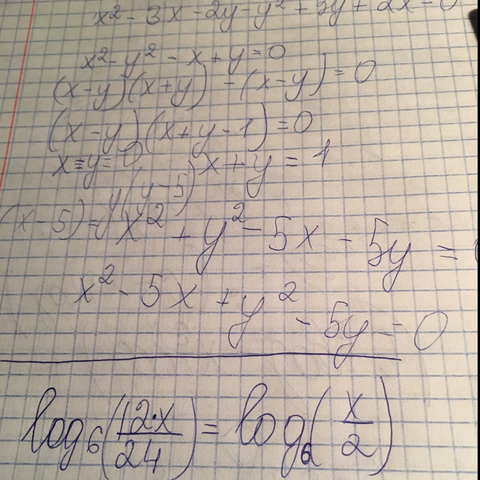 x² - 3x - 2y - y² + 3y + 2x = 0
x² - y² - x + y = 0
(x-y)(x+y) - (x-y) = 0
(x-y)(x+y-1) = 0
x = y = 0 x + y = 1
y(y-5)
(x-5) = x² + y² - 5x - 5y =
x² - 5x + y² - 5y = 0
log₆(12·x/24) = log₆(x/2)